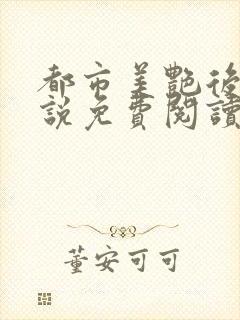 都市美艷後
說免費閱讀
董安可可